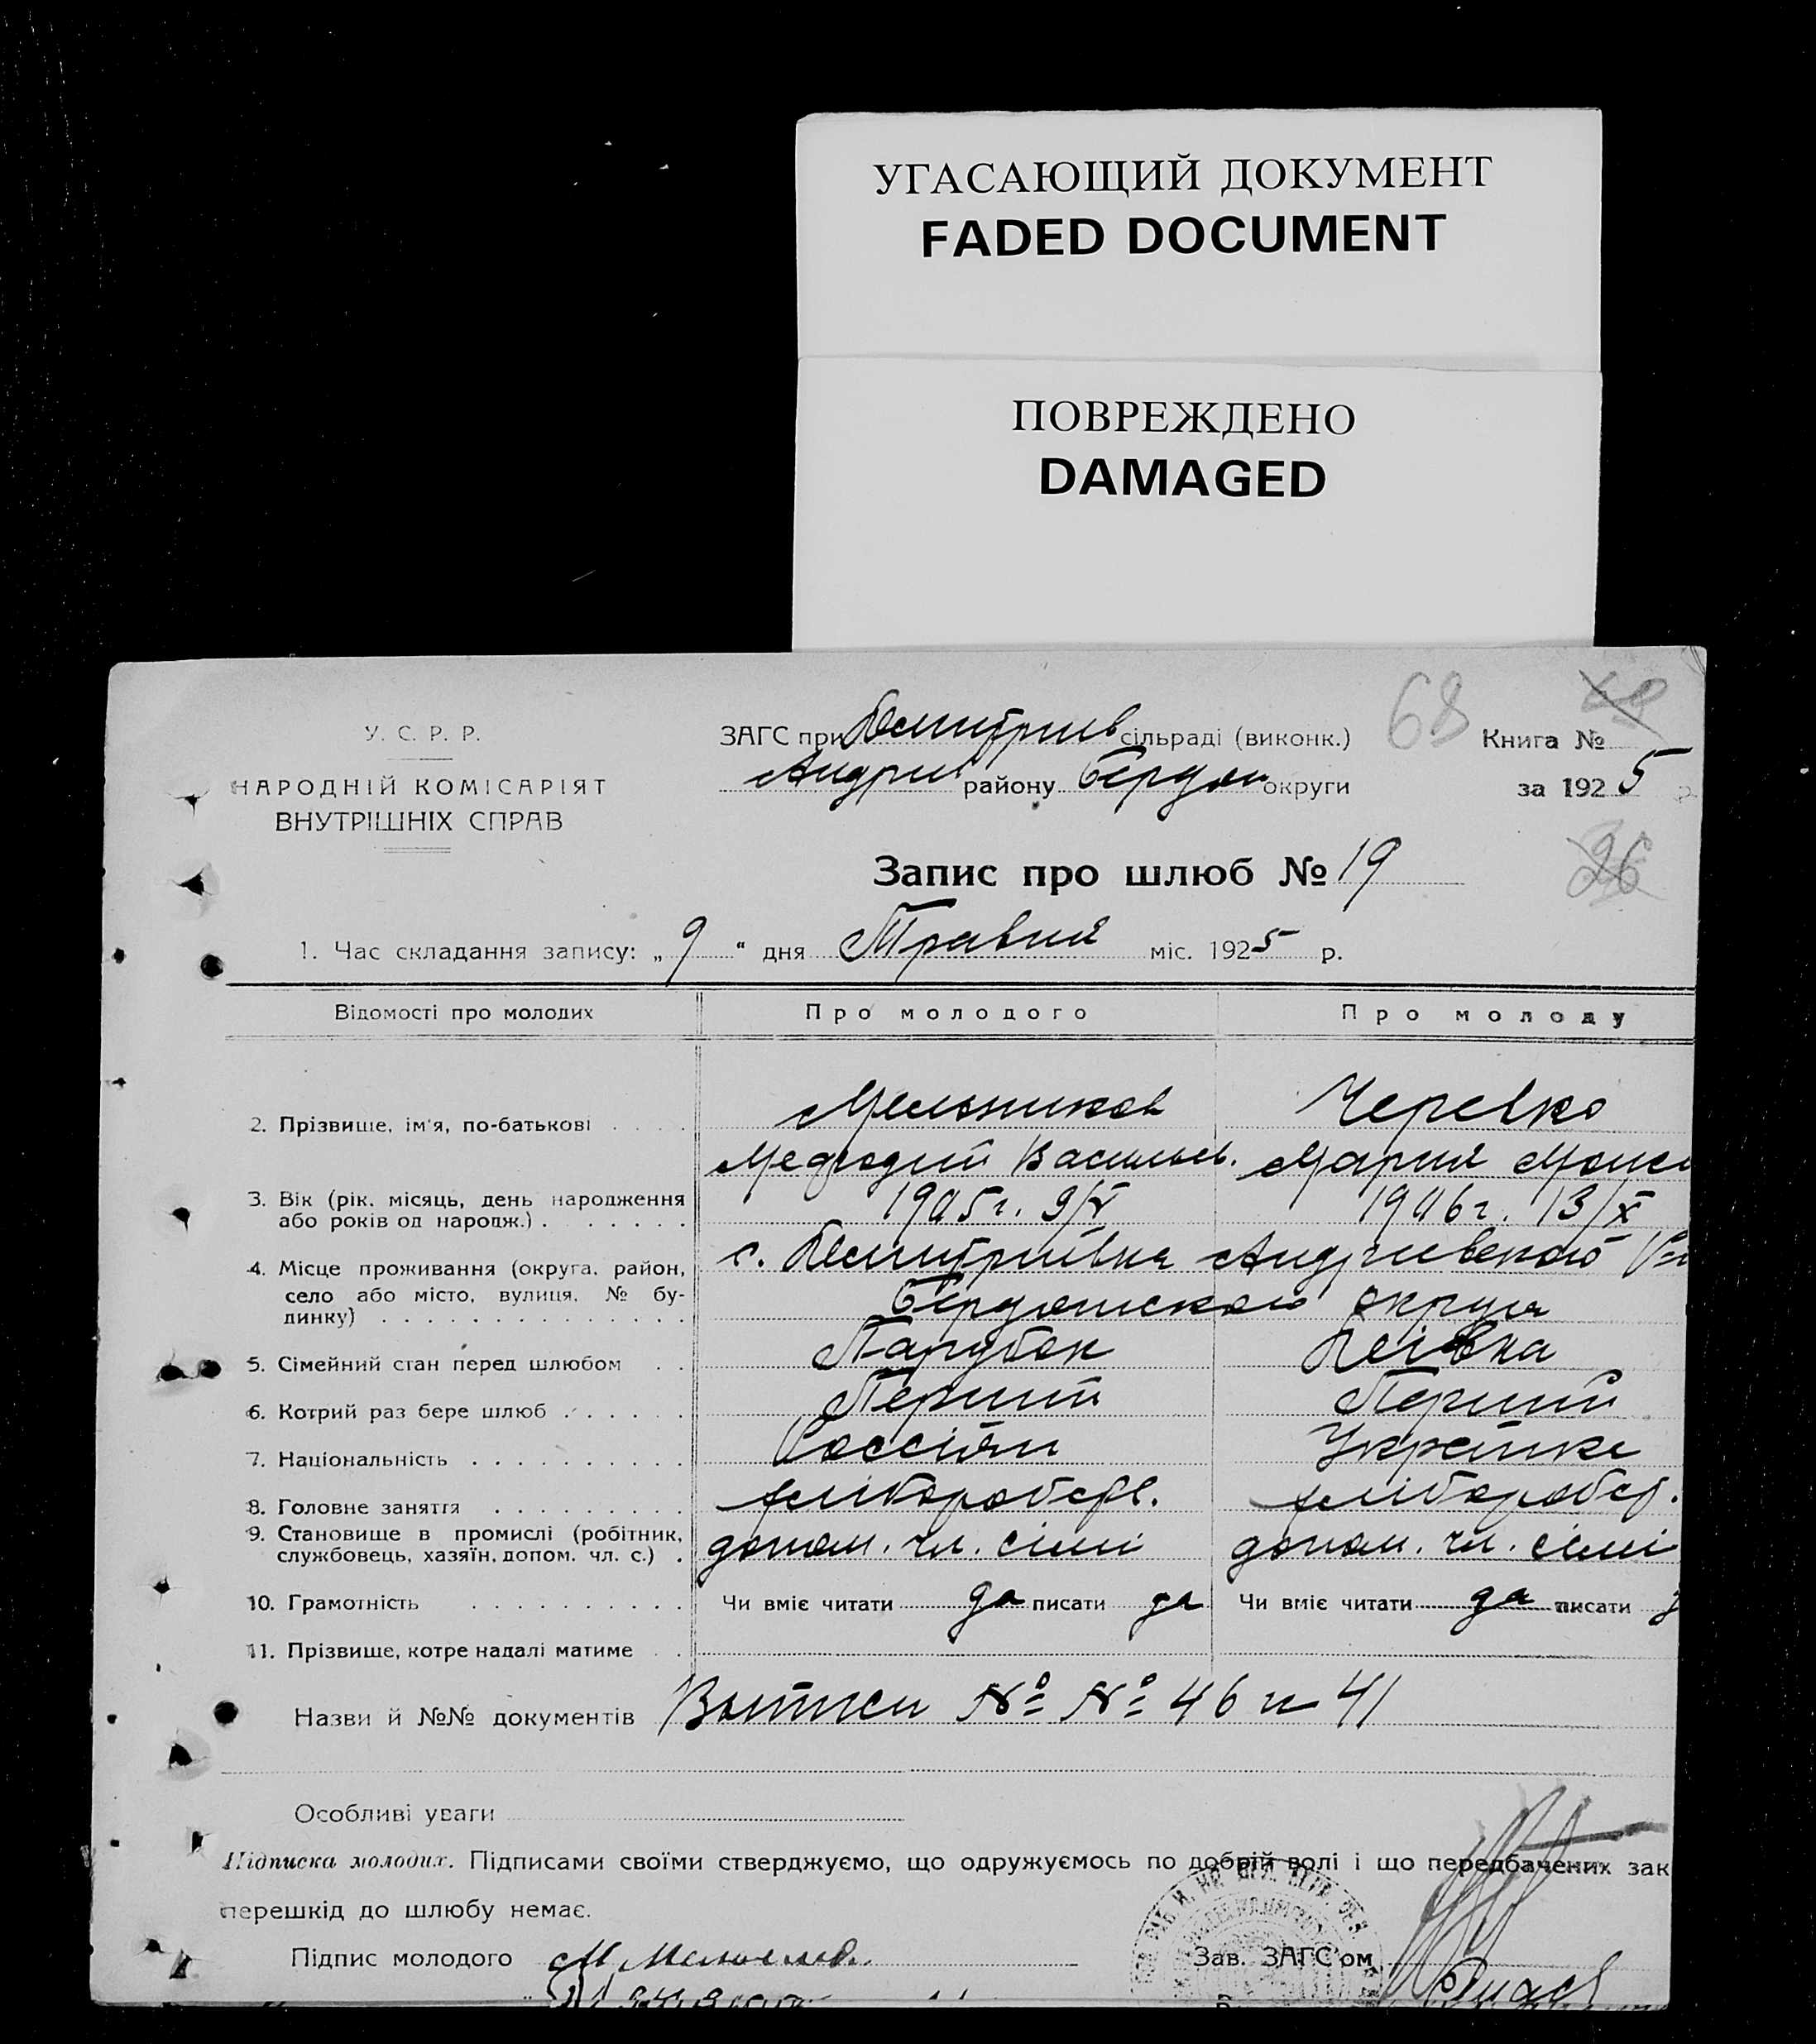 УГАСАЮЩИЙ ДОКУМЕНТ
FADED DOCUMENT
ПОВРЕЖДЕНО
DAMAGED
68 49
У. С. Р. Р.
НАРОДНІЙ КОМІСАРІЯТ
ВНУТРІШНІХ СПРАВ
ЗАГС при Дмитрив сільраді (виконк.)
Андрив району Бердян округи
Книга №
за 1925
26
Запис про шлюб № 19
1. Час складання запису: „9“ дня Травня міс. 1925 р.
Відомості про молодих Про молодого Про молоду
2. Прізвище, ім'я, по-батькові Мельников Черевко
Мефодий Васильев. Мария Моис
3. Вік (рік, місяць, день народження або років од народж.) 1905 г. 9/V 1906 г. 13/X
4. Місце проживання (округа, район, село або місто, вулиця, № будинку) с. Дмитривка Андривского
Бердянского округа
5. Сімейний стан перед шлюбом Парубок Дівка
6. Котрий раз бере шлюб Перший Перший
7. Національність Россіян Українка
8. Головне заняття хлібороб
9. Становище в промислі (робітник, службовець, хазяїн, допом. чл. с.) допом. чл. сімі допом. чл. сімі
10. Грамотність Чи вміє читати да писати да Чи вміє читати да писати
11. Прізвище, котре надалі матиме
Назви й №№ документів Выписи № № 46 и 41
Особливі уваги
Підписка молодих. Підписами своїми стверджуємо, що одружуємось по добрій волі і що передбачених зак
перешкід до шлюбу немає.
Підпис молодого Зав. ЗАГС'ом